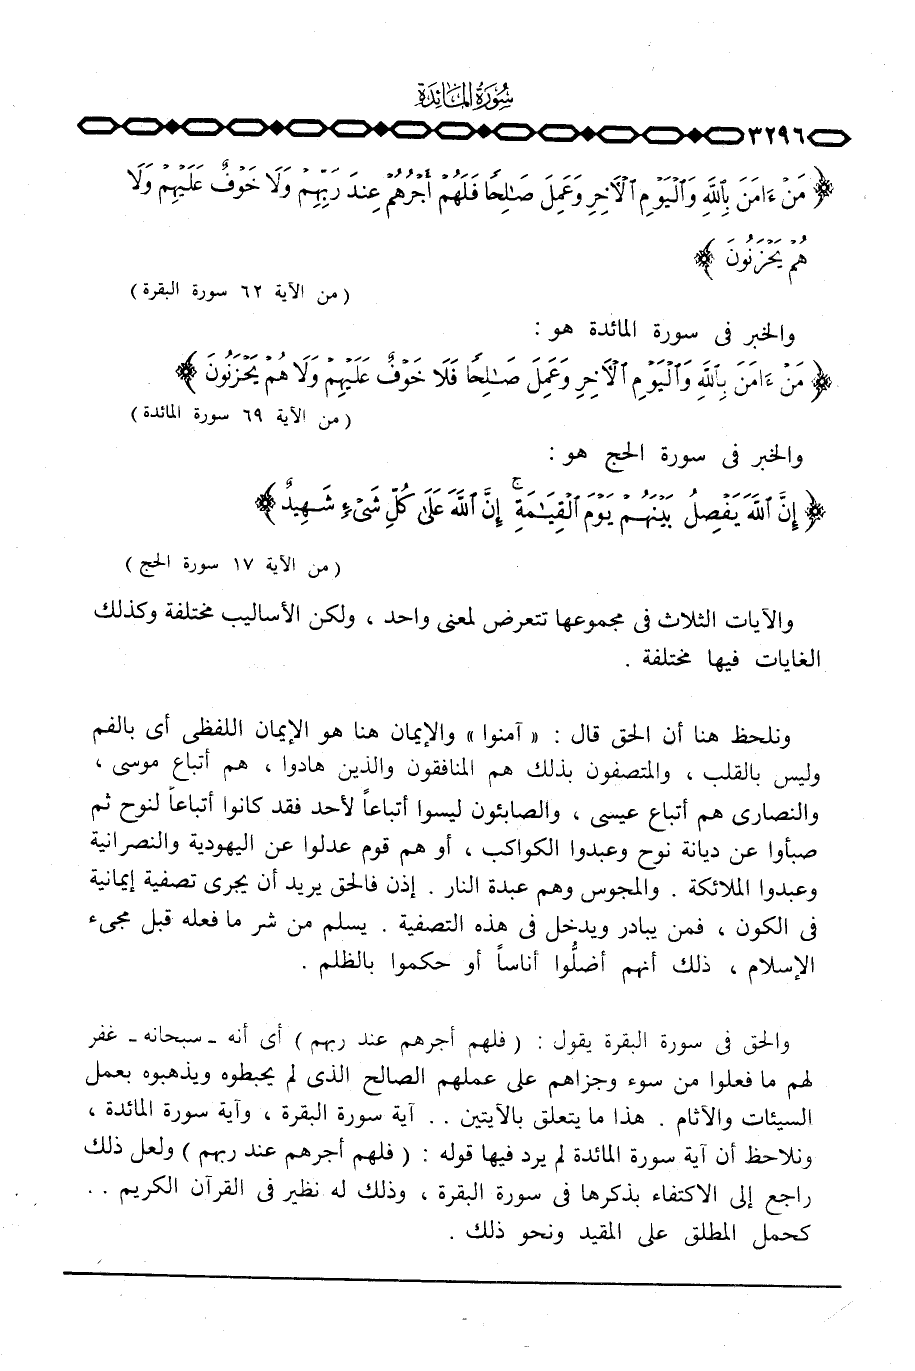 سورة المائدة
٣٢٩٦
﴿ مَنْ ءَامَنَ بِٱللَّهِ وَٱلْيَوْمِ ٱلْأَخِرِ وَعَمِلَ صَـٰلِحًا فَلَهُمْ أَجْرُهُمْ عِندَ رَبِّهِمْ وَلَا خَوْفٌ عَلَيْهِمْ وَلَا
هُمْ يَحْزَنُونَ ﴾
( من الآية ٦٢ سورة البقرة )
والخبر فى سورة المائدة هو :
﴿ مَنْ ءَامَنَ بِٱللَّهِ وَٱلْيَوْمِ ٱلْأَخِرِ وَعَمِلَ صَـٰلِحًا فَلَا خَوْفٌ عَلَيْهِمْ وَلَا هُمْ يَحْزَنُونَ ﴾
( من الآية ٦٩ سورة المائدة )
والخبر فى سورة الحج هو :
﴿ إِنَّ ٱللَّهَ يَفْصِلُ بَيْنَهُمْ يَوْمَ ٱلْقِيَـٰمَةِ ۚ إِنَّ ٱللَّهَ عَلَىٰ كُلِّ شَىْءٍ شَهِيدٌ ﴾
( من الآية ١٧ سورة الحج )
والآيات الثلاث فى مجموعها تتعرض لمعنى واحد ، ولكن الأساليب مختلفة وكذلك
الغايات فيها مختلفة .
ونلحظ هنا أن الحق قال : « آمنوا » والإيمان هنا هو الإيمان اللفظى أى بالفم
وليس بالقلب ، والمتصفون بذلك هم المنافقون والذين هادوا ، هم أتباع موسى ،
والنصارى هم أتباع عيسى ، والصابئون ليسوا أتباعاً لأحد فقد كانوا أتباعاً لنوح ثم
صبأوا عن ديانة نوح وعبدوا الكواكب ، أو هم قوم عدلوا عن اليهودية والنصرانية
وعبدوا الملائكة . والمجوس وهم عبدة النار . إذن فالحق يريد أن يجرى تصفية إيمانية
فى الكون ، فمن يبادر ويدخل فى هذه التصفية . يسلم من شر ما فعله قبل مجىء
الإسلام ، ذلك أنهم أضلُّوا أناساً أو حكموا بالظلم .
والحق فى سورة البقرة يقول : ( فلهم أجرهم عند ربهم ) أى أنه ـ سبحانه ـ غفر
لهم ما فعلوا من سوء وجزاهم على عملهم الصالح الذى لم يحبطوه ويذهبوه بعمل
السيئات والآثام . هذا ما يتعلق بالآيتين . . آية سورة البقرة ، وآية سورة المائدة ،
ونلاحظ أن آية سورة المائدة لم يرد فيها قوله : ( فلهم أجرهم عند ربهم ) ولعل ذلك
راجع إلى الاكتفاء بذكرها فى سورة البقرة ، وذلك له نظير فى القرآن الكريم . .
كحمل المطلق على المقيد ونحو ذلك .